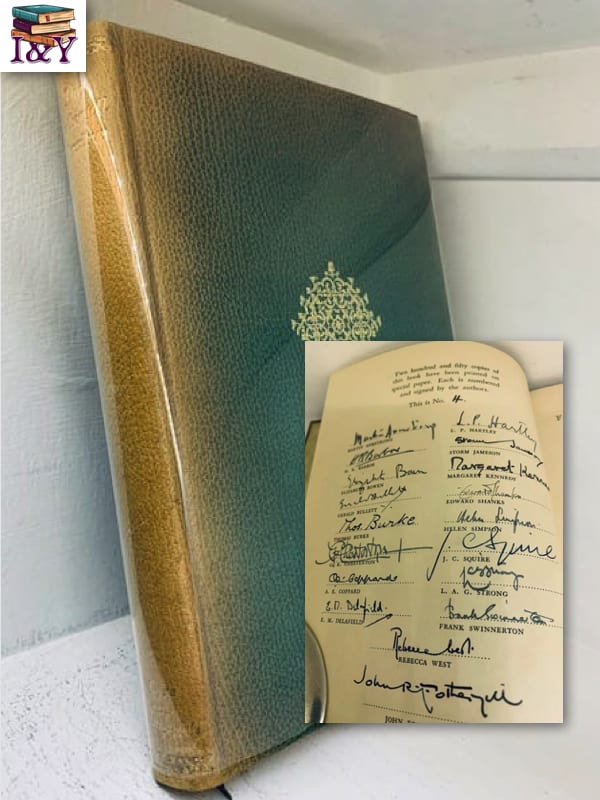 I&Y
Two hundred and fifty copies of
this book have been printed on
special paper. Each is numbered
and signed by the authors.
This is No. 4.
Martin Armstrong
MARTIN ARMSTRONG
H. R. BARBOR
Elizabeth Bowen
ELIZABETH BOWEN
Gerald Bullett
GERALD BULLETT
Thos. Burke
THOMAS BURKE
G. K. CHESTERTON
A. E. Coppard
A. E. COPPARD
E. M. Delafield
E. M. DELAFIELD
L. P. Hartley
L. P. HARTLEY
Storm Jameson
STORM JAMESON
Margaret Kennedy
MARGARET KENNEDY
Edward Shanks
EDWARD SHANKS
Helen Simpson
HELEN SIMPSON
J C Squire
J. C. SQUIRE
L. A. G. STRONG
Frank Swinnerton
FRANK SWINNERTON
Rebecca West
REBECCA WEST
John R. Fothergill
JOHN